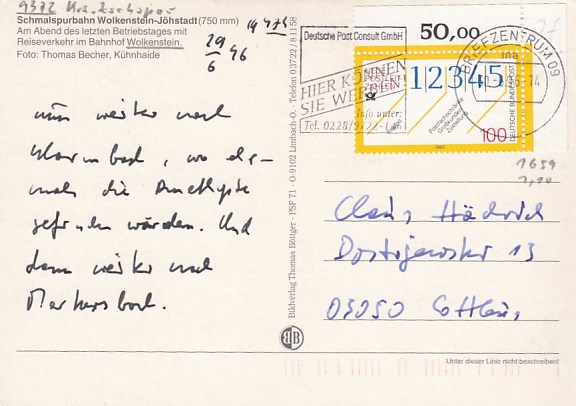 9372
Schmalspurbahn Wolkenstein-Jöhstadt (750 mm)
Am Abend des letzten Betriebstages mit
Reiseverkehr im Bahnhof Wolkenstein.
Foto: Thomas Becher, Kühnhaide
29/6 96
nun weiter nach
wo da-
die Amethyste
gefunden wurden. Und
dann weiter nach
Markersbach.
Bildverlag Thomas Böttger · PSF 71 · O-9102 Limbach-O. · Telefon 0 37 22 / 8 11 58
BB
Deutsche Post Consult GmbH
HIER KÖNNEN
SIE WERBEN
Info unter:
Tel. 0228/9722-
50,00
27
BRIEFZENTRUM 09
NEUE
POSTLEIT
ZAHLEN
12345
Postfachschränke
Großkunden
Zustellung
100
DEUTSCHE BUNDESPOST
1993
1659
Claus Hädrich
Dostojewskistr 13
03050 Cottbus
Unter dieser Linie nicht beschreiben!